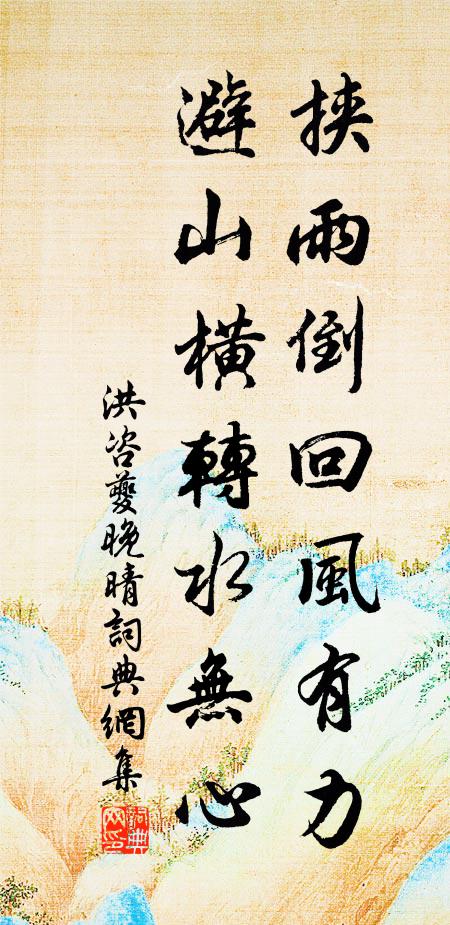 挾雨倒回風有力
避山橫轉水無心
洪咨夔晚晴詞典網集
詞典網印